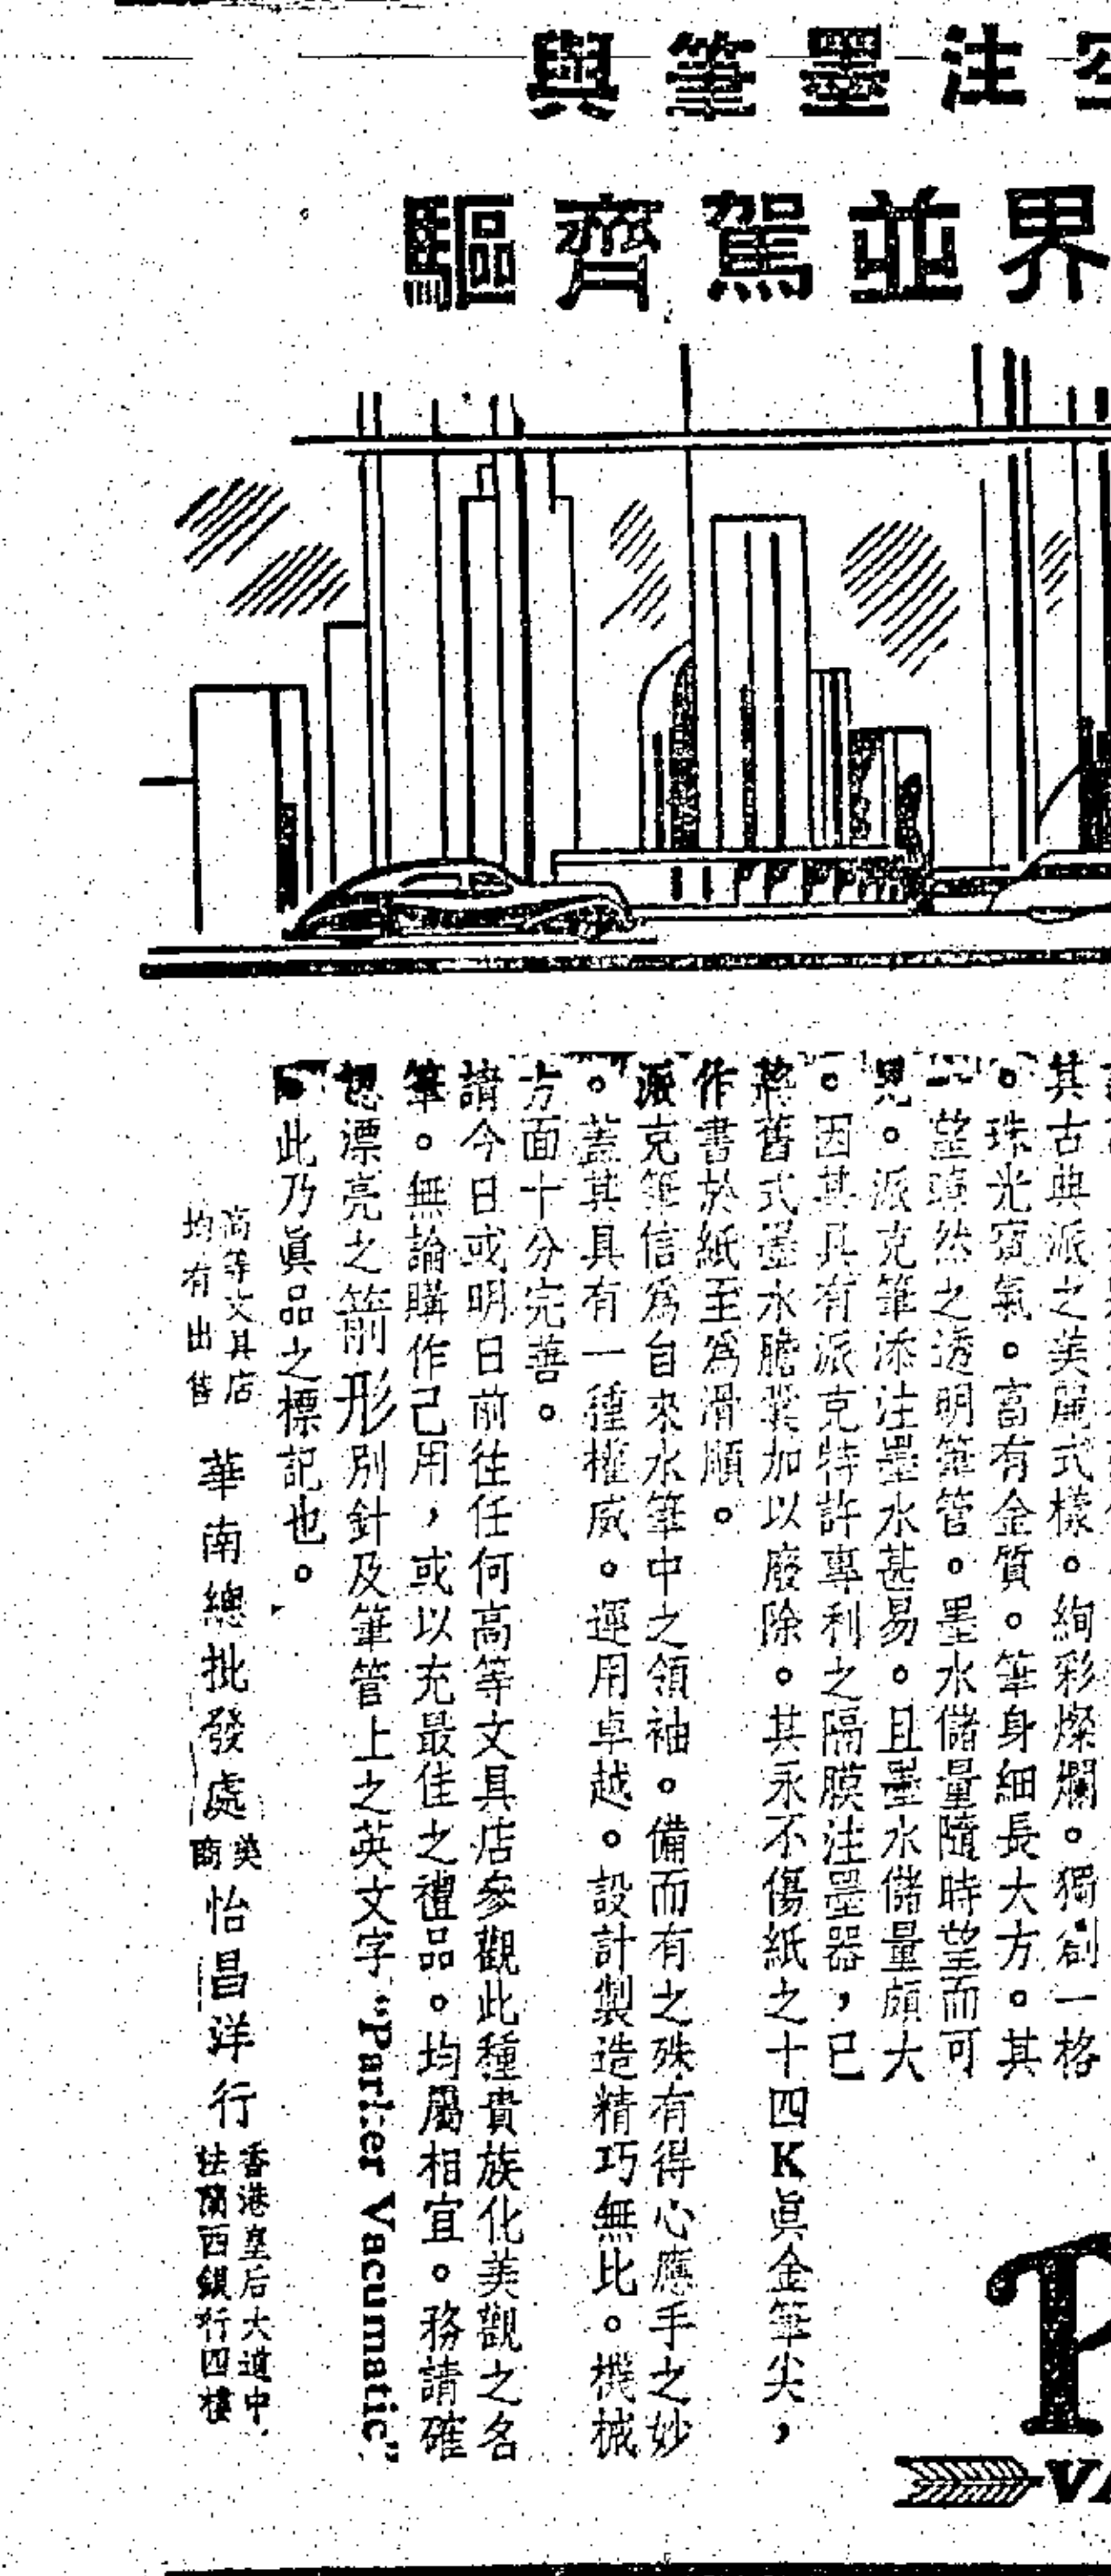 注墨筆與
界並駕齊驅
其古典派之美麗式樣。絢彩燦爛。獨創一格
。珠光寶氣。富有金質。筆身細長大方。其
一望瞭然之透明筆管。墨水儲量隨時望而可
見。派克筆添注墨水甚易。且墨水儲量頗大
。因其具有派克特許專利之隔膜注墨器,已
將舊式墨水膽囊加以廢除。其永不傷紙之十四K眞金筆尖,
作書於紙至爲滑順。
派克筆信爲自來水筆中之領袖。備而有之殊有得心應手之妙
。蓋其具有一種權威。運用卓越。設計製造精巧無比。機械
方面十分完善。
請今日或明日前往任何高等文具店參觀此種貴族化美觀之名
筆。無論購作己用,或以充最佳之禮品。均屬相宜。務請確
認漂亮之箭形別針及筆管上之英文字“Parker Vacumatic”
。此乃眞品之標記也。
高等文具店
均有出售
華南總批發處
英商
怡昌洋行
香港皇后大道中
法蘭西銀行四樓
P
VA